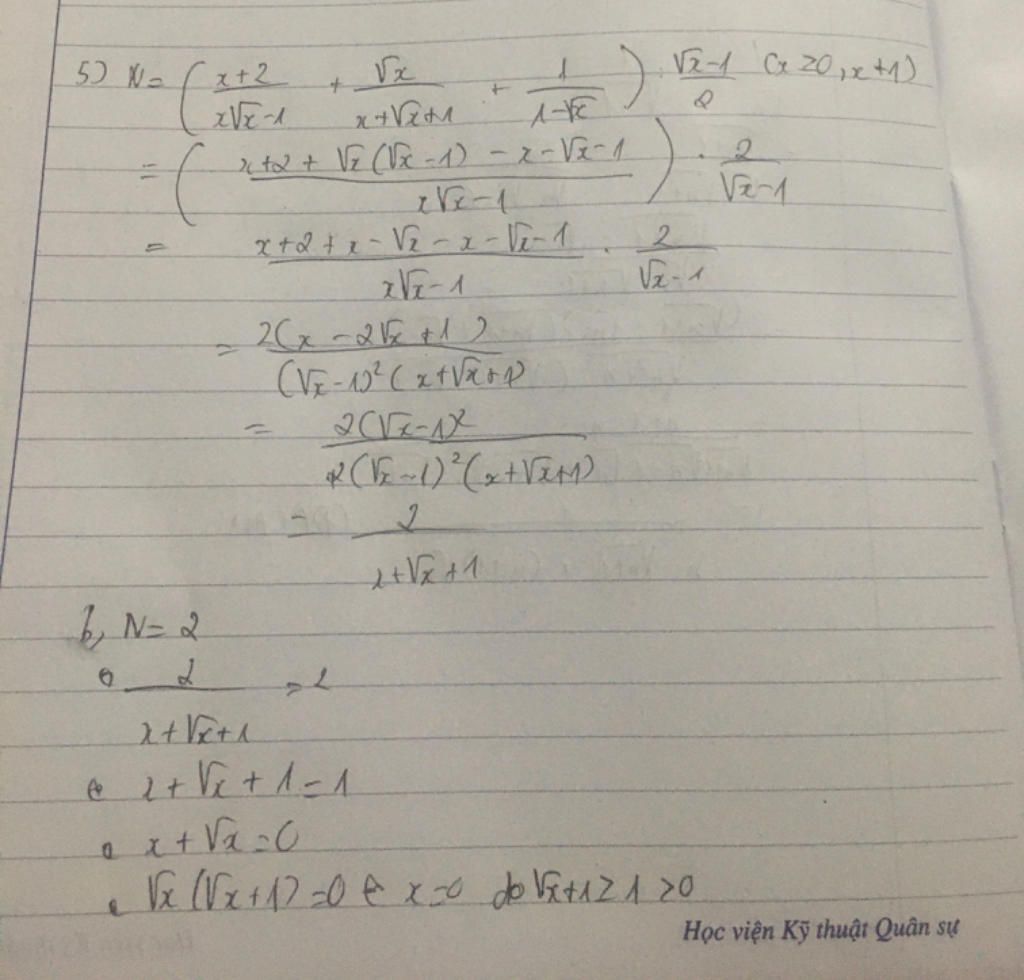 5) N = ( (x+2)/(x√x-1) + √x/(x+√x+1) + 1/(1-√x) ) : (√x-1)/2 (x ≥ 0, x ≠ 1)
= ( (x+2+√x(√x-1)-x-√x-1)/(x√x-1) ) . 2/(√x-1)
= (x+2+x-√x-x-√x-1)/(x√x-1) . 2/(√x-1)
= 2(x-2√x+1)/((√x-1)²(x+√x+1))
= 2(√x-1)²/((√x-1)²(x+√x+1))
= 2/(x+√x+1)
b, N = 2
2/(x+√x+1) = 2
x+√x+1 = 1
x+√x = 0
√x(√x+1) = 0 ⇔ x = 0 do √x+1 ≥ 1 > 0
Học viện Kỹ thuật Quân sự